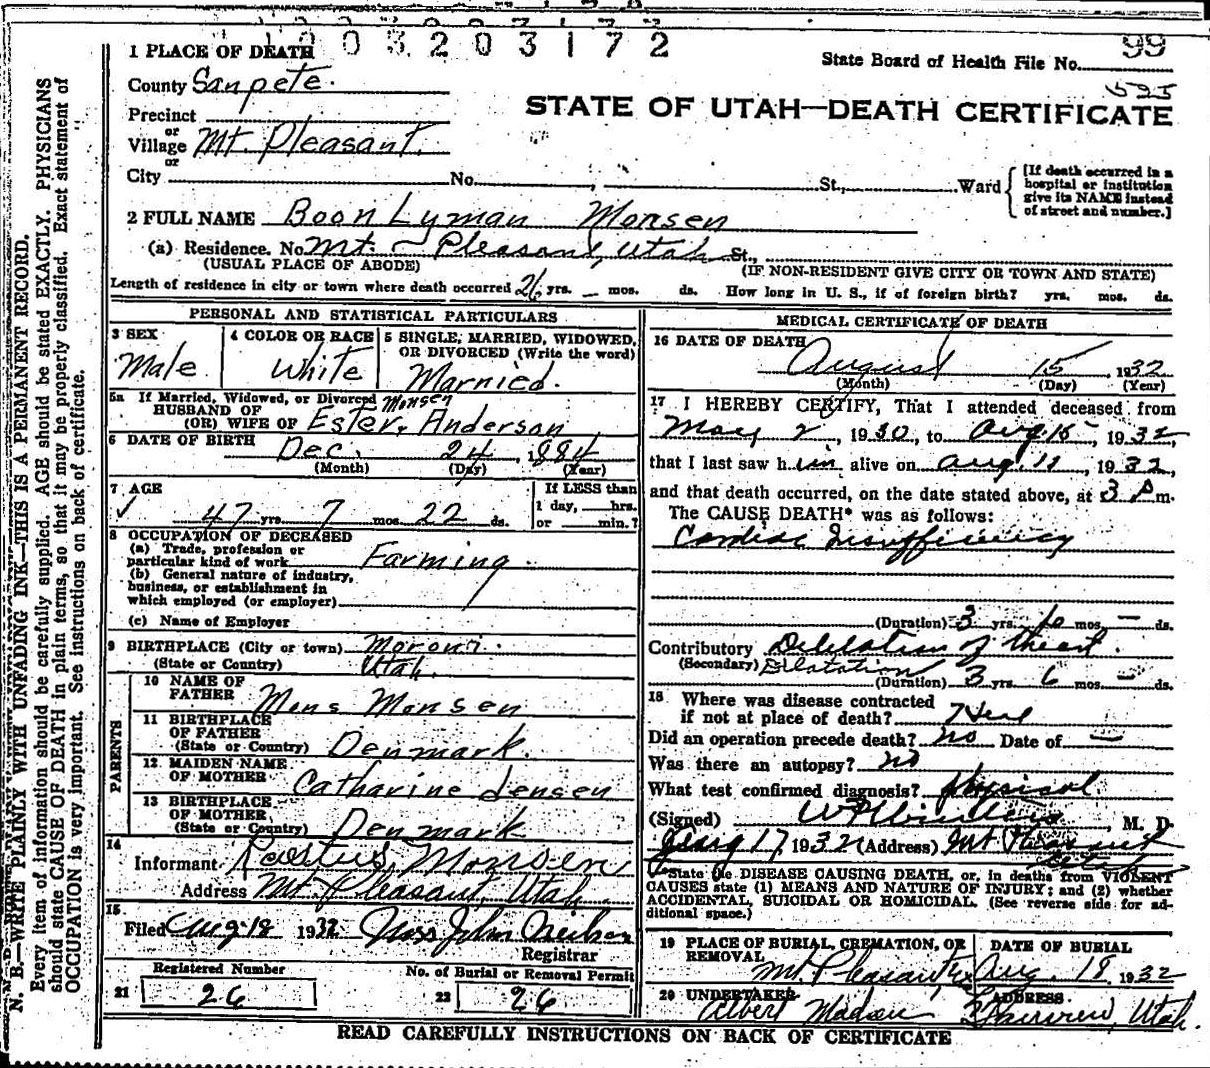 1003203172
1 PLACE OF DEATH
State Board of Health File No. 99
County Sanpete.
STATE OF UTAH—DEATH CERTIFICATE
Precinct
or
Village Mt. Pleasant.
or
City No. St., Ward
[If death occurred in a
hospital or institution
give its NAME instead
of street and number.]
2 FULL NAME Boon Lyman Monsen
(a) Residence. No. Mt. Pleasant, Utah St.,
(USUAL PLACE OF ABODE) (IF NON-RESIDENT GIVE CITY OR TOWN AND STATE)
Length of residence in city or town where death occurred 26 yrs. — mos. ds. How long in U. S., if of foreign birth? yrs. mos. ds.
PERSONAL AND STATISTICAL PARTICULARS
3 SEX
Male
4 COLOR OR RACE
White
5 SINGLE, MARRIED, WIDOWED,
OR DIVORCED (Write the word)
Married.
5a If Married, Widowed, or Divorced
HUSBAND OF Monsen
(OR) WIFE OF Ester, Anderson
6 DATE OF BIRTH
Dec. 24, 1884
(Month) (Day) (Year)
7 AGE
47 yrs. 7 mos. 22 ds.
If LESS than
1 day, hrs.
or min.?
8 OCCUPATION OF DECEASED
(a) Trade, profession or
particular kind of work Farming.
(b) General nature of industry,
business, or establishment in
which employed (or employer)
(c) Name of Employer
9 BIRTHPLACE (City or town) Moroni.
(State or Country) Utah.
PARENTS
10 NAME OF
FATHER Mons Monsen
11 BIRTHPLACE
OF FATHER
(State or Country) Denmark.
12 MAIDEN NAME
OF MOTHER Catharine Jensen
13 BIRTHPLACE
OF MOTHER,
(State or Country) Denmark
14
Informant Rastus, Monsen
Address Mt. Pleasant, Utah.
15
Filed Aug 18 1932 John Neilson
Registrar
Registered Number
21 26
No. of Burial or Removal Permit
22 26
MEDICAL CERTIFICATE OF DEATH
16 DATE OF DEATH
August 15, 1932
(Month) (Day) (Year)
17 I HEREBY CERTIFY, That I attended deceased from
May 2, 1930, to Aug 15, 1932,
that I last saw him alive on Aug. 11, 1932,
and that death occurred, on the date stated above, at 3 P m.
The CAUSE DEATH* was as follows:
Cardiac Insufficiency
(Duration) 3 yrs. mos. — ds.
Contributory Dilitation of Heart.
(Secondary) Dilatation
(Duration) 3 yrs 6 mos. — ds.
18 Where was disease contracted
if not at place of death?
Did an operation precede death? no Date of —
Was there an autopsy? no
What test confirmed diagnosis? physical
(Signed) , M. D.
Aug 17, 1932 (Address) Mt Pleasant
Utah
*State the DISEASE CAUSING DEATH, or, in deaths from VIOLENT
CAUSES state (1) MEANS AND NATURE OF INJURY; and (2) whether
ACCIDENTAL, SUICIDAL OR HOMICIDAL. (See reverse side for ad-
ditional space.)
19 PLACE OF BURIAL, CREMATION, OR
REMOVAL
Mt. Pleasant,
DATE OF BURIAL
Aug. 18, 1932
20 UNDERTAKER
Albert Madsen
ADDRESS
Fairview, Utah.
READ CAREFULLY INSTRUCTIONS ON BACK OF CERTIFICATE
N. B.—WRITE PLAINLY WITH UNFADING INK—THIS IS A PERMANENT RECORD.
Every item of information should be carefully supplied. AGE should be stated EXACTLY. PHYSICIANS
should state CAUSE OF DEATH in plain terms, so that it may be properly classified. Exact statement of
OCCUPATION is very important. See instructions on back of certificate.